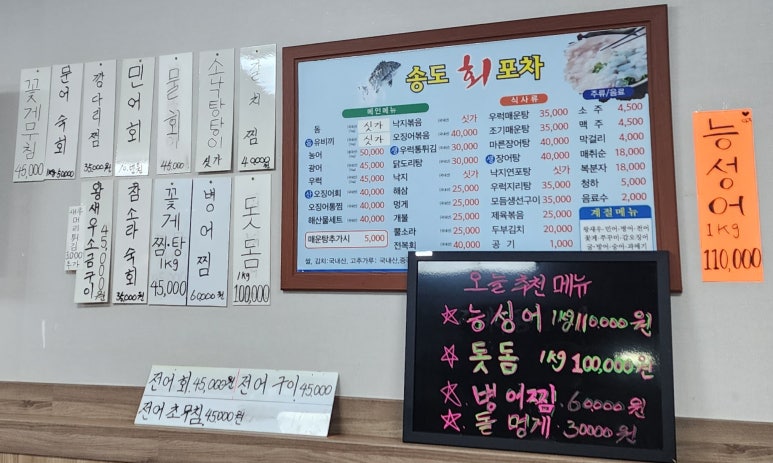 꽃게무침
45,000
문어숙회
깡다리찜
35,000원
민어회
물회
45,000
소나탕탕이
싯가
갈치찜
왕새우소금구이
45,000원
참소라숙회
35,000원
꽃게찜·탕
1kg
45,000
병어찜
60,000원
돗돔
1kg
100,000
새우머리튀김
5,000
추가
송도 회 포차
메인메뉴
돔 싯가
유비끼 싯가
농어 50,000
광어 45,000
우럭 45,000
오징어회 40,000
오징어통찜 40,000
해산물세트 40,000
매운탕추가시 5,000
낙지볶음 싯가
오징어볶음 40,000
우럭통튀김 40,000
닭도리탕 50,000
낙지 싯가
해삼
멍게
개불
뿔소라
전복회
식사류
우럭매운탕 35,000
조기매운탕 35,000
마른장어탕 30,000
장어탕 40,000
낙지연포탕 싯가
우럭지리탕
모듬생선구이 35,000
제육볶음 25,000
두부김치 20,000
공기 1,000
주류/음료
소주 4,500
맥주 4,500
막걸리 4,000
매취순 18,000
복분자 18,000
청하 5,000
음료수 2,000
계절메뉴
왕새우·민어·병어·전어
쌀, 김치:국내산, 고추가루: 국내산,중
능성어
1kg
110,000
오늘 추천 메뉴
☆능성어 1kg 110,000원
★돗돔 1kg 100,000원
★병어찜 60,000원
★돌멍게 30000원
전어회 45,000원 전어구이 45,000
전어초무침 45000원